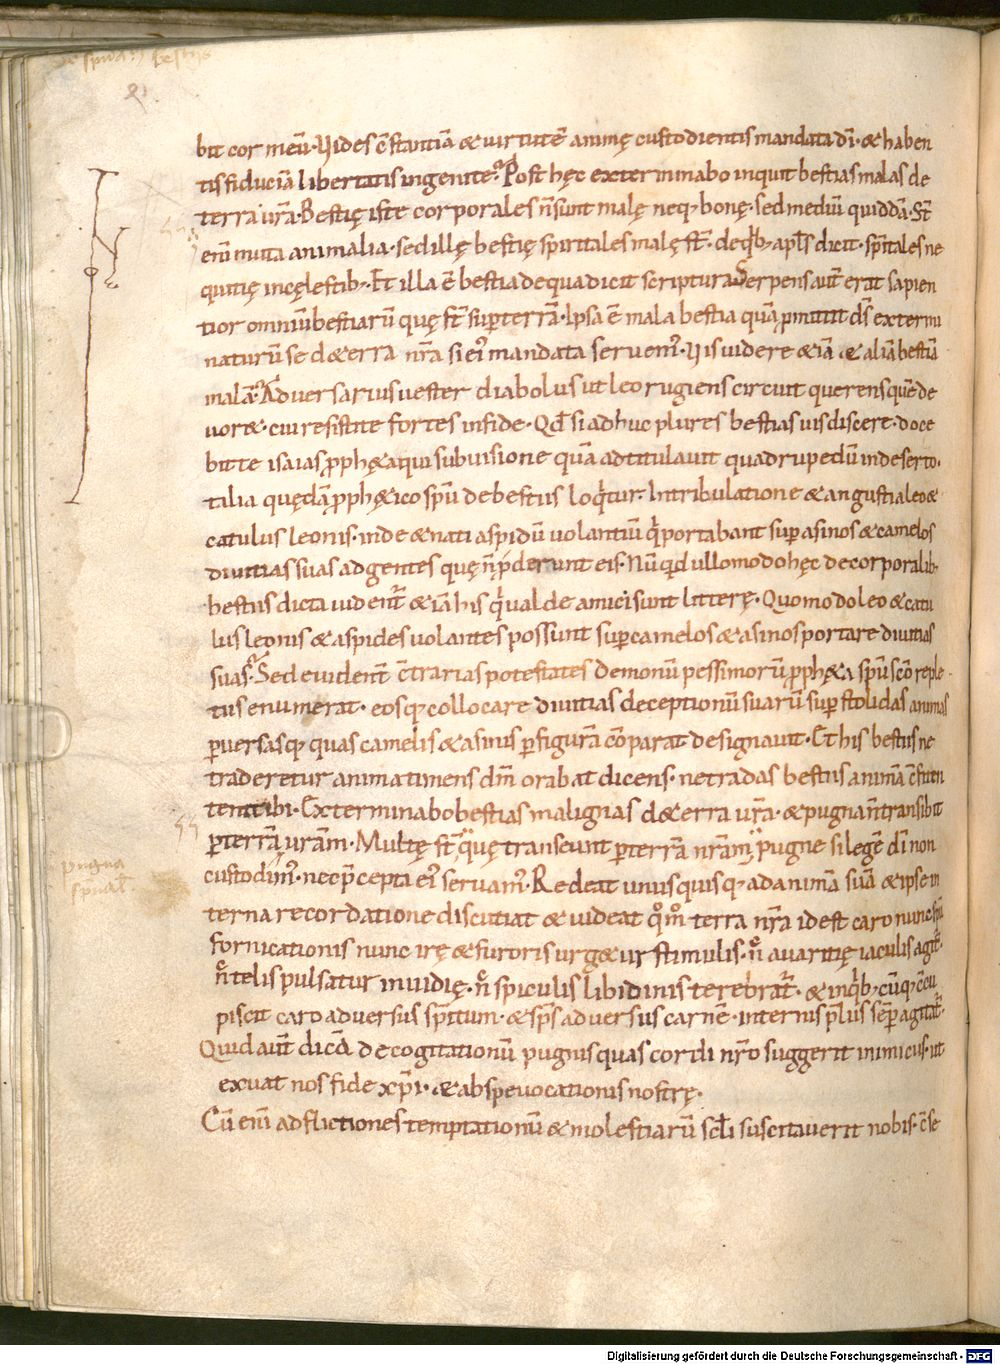 bit cor meū· Vides c̄stantiā & uirtutē animę custodientis mandata dī· & haben
tis fiduciā libertatis ingenitę. Post hęc exterminabo inquit bestias malas de
terra ur̄a· Bestię iste corporales n̄ sunt malę neq; bonę· sed mediū quiddā· St̄
enī muta animalia· sed illę bestię spiritales malę st̄· de qb; apl̄s dicit· sp̄itales ne
quitię in cęlestib;· Et illa ē bestia de qua dicit scriptura Serpens aut̄ erat sapien
tior omniū bestiarū quę st̄ sup terrā· Ipsa ē mala bestia quā pmittit ds̄ extermi
naturū se d& erra nr̄a si ei' mandata seruem'· Vis uidere & iā & aliā bestiā
malā· Aduersarius uester diabolus ut leo rugiens circuit querens quē de
uor&· cui resistite fortes in fide· Qd̄ si adhuc plures bestias uis discere· doce
bit te isaias pph&a qui sub uisione quā adtitulauit quadrupedū in deserto·
talia quędā pph&ico sp̄u de bestiis loqtur· In tribulatione & angustia leo &
catulus leonis· inde & nati aspidū uolantiū q portabant sup asinos & camelos
diuitias suas ad gentes quę n̄ pderunt eis· Nūquid ullo modo hęc de corporalib;
bestiis dicta uident̄ & iā his q ualde amici sunt litterę· Quomodo leo & catu
lus leonis & aspides uolantes possunt sup camelos & asinos portare diuitias
suas· Sed euident̄ c̄trarias potestates demonū pessimorū pph&a sp̄u sc̄o reple
tus enumerat· eosq; collocare diuitias deceptionū suarū sup stolidas animas
puersasq; quas camelis & asinis p figurā cōparat designauit· Et his bestiis ne
traderetur anima timens dm̄ orabat dicens· ne tradas bestiis animā c̄fiten
tem tibi· Exterminabo bestias malignas d& erra ur̄a· & pugna n̄ transibit
p terrā ur̄am· Multę st̄ quę transeunt p terrā nr̄am pugne si legē dī non
custodim'· nec p̄cepta ei' seruam'· Redeat unusquisq; ad animā suā & ipse in
terna recordatione discutiat & uideat qm̊ terra nr̄a id est caro nunc sp̄u
fornicationis nunc irę & furoris urg&ur stimulis· n̄ auaritię iaculis agit̄·
n̄ telis pulsatur inuidię· n̄ spiculis libidinis terebrat̄· & in qb; cūq; c̄cu
piscit caro aduersus sp̄itum· & sp̄s aduersus carnē· internis p̄liis semp agitat̄·
Quid aut̄ dicā de cogitationū pugnis quas cordi nr̄o suggerit inimicus· ut
exuat nos fide xp̄i· & ab spe uocationis nostrę·
Cū enī adflictiones temptationū & molestiarū scl̄i suscitauerit nobis· c̄se
pugna
sp̄ual̄
Digitalisierung gefördert durch die Deutsche Forschungsgemeinschaft - DFG